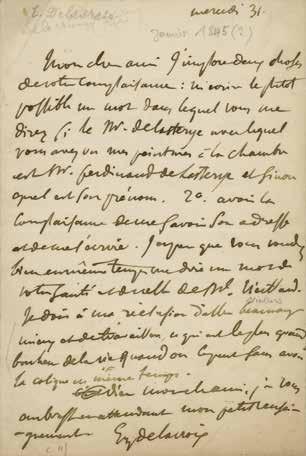 E. Delacroix
mercredi 31.
Janvier 1845 (?)
Mon cher ami J'implore deux choses
de votre complaisance : m'écrire le plutôt
possible un mot dans lequel vous me
direz si le Mr. de Lasteyrie avec lequel
vous avez vu mes peintures à la chambre
est Mr. ferdinand de Lasteyrie et sinon
quel est son prénom. 2o. avoir la
complaisance de me savoir son adresse
et de me l'écrire. J'espère que vous voudrez
bien en même temps me dire un mot de
votre santé et de celle de Me.
Je dois à une reclusion d'aller beaucoup
mieux et de travailler, ce qui est le plus grand
bonheur de la vie quand on le peut faire sans
la colique en même temps.
adieu mon cher ami, je vous
embrasse en attendant mon petit rensei-
gnement.
Eug Delacroix